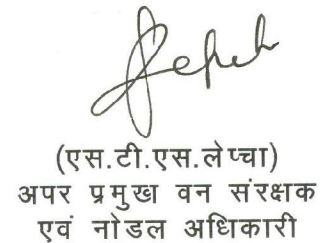 (एस.टी.एस.लेप्चा)
अपर प्रमुख वन संरक्षक
एवं नोडल अधिकारी